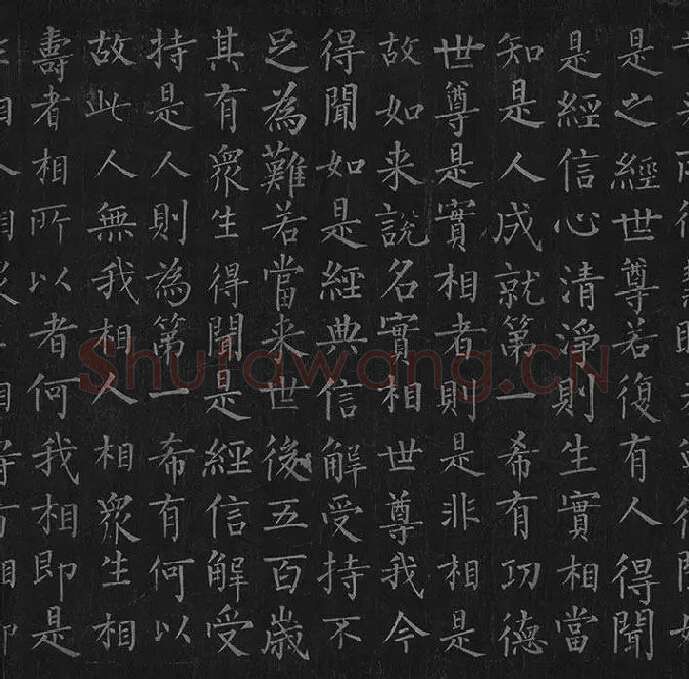 是之經世尊若復有人得聞
是經信心清淨則生實相當
知是人成就第一希有功德
世尊是實相者則是非相是
故如来說名實相世尊我今
得聞如是經典信解受持不
足為難若當来世後五百歲
其有眾生得聞是經信解受
持是人則為第一希有何以
故此人無我相人相眾生相
壽者相所以者何我相即是
Shufawang.CN